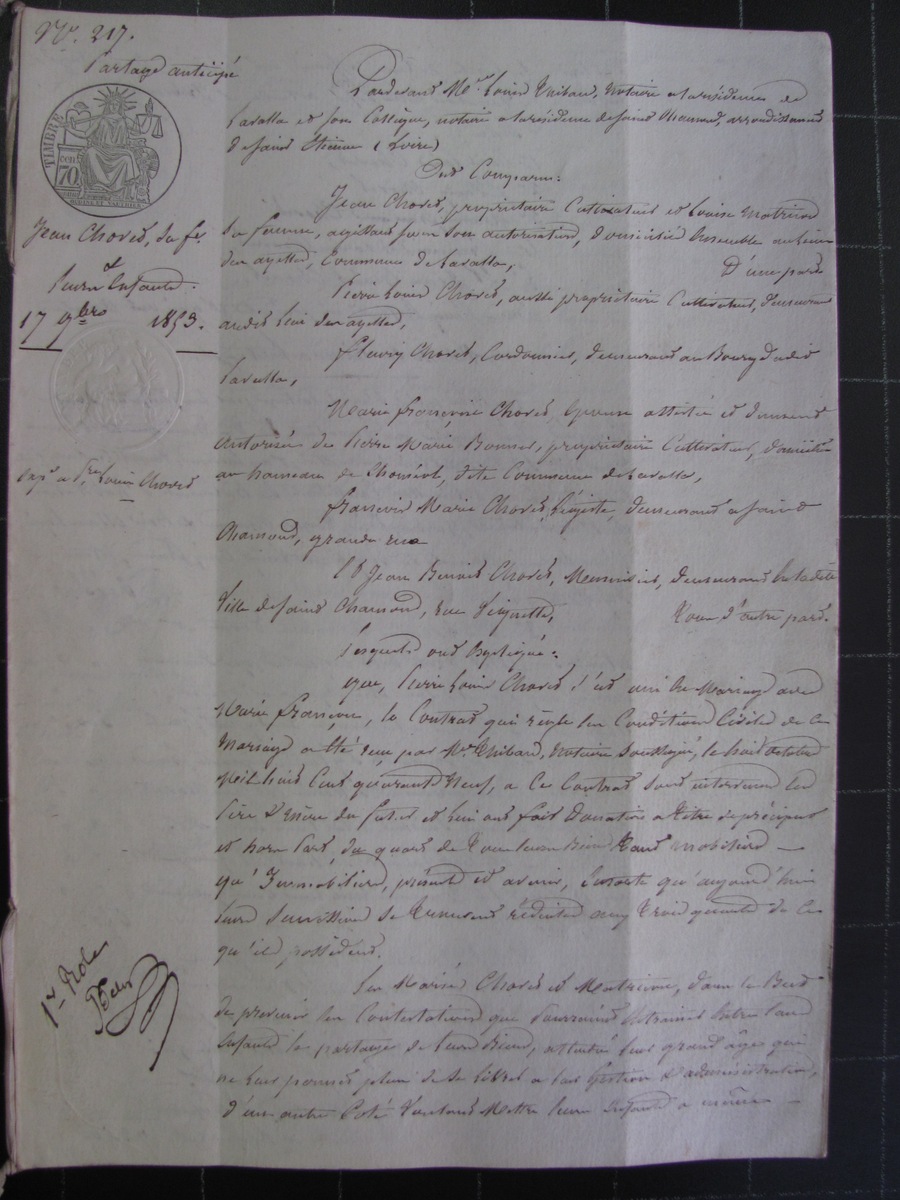 N.° 217.
Partage anticipé
TIMBRE
70 cen
Jean Chorel, sa fe.
&
Leurs Enfants.
17 9bre 1853.
Exp. a Pre Louis Chorel
Pardevant Me Louis Thibaud, Notaire a la résidence de
Lavalla et son Collègue, notaire a la résidence de saint Chamond, arrondissement
de saint Etienne (Loire)
Ont Comparu:
Jean Chorel, propriétaire Cultivateur et Louise Matricon
sa femme, agissant sous son autorisation, domiciliés Ensemble au lieu
Commune de Lavalla, D'une part
Pierre Louis Chorel, aussi propriétaire Cultivateur, demeurant
audit lieu
Fleury Chorel, Cordonnier, demeurant au Bourg dudit
Lavalla,
Marie françoise Chorel, Epouse assistée et dument
autorisée de Pierre Marie Bonnet, propriétaire Cultivateur, domicilié
au hameau de dite Commune de Lavalla,
François Marie Chorel, demeurant a saint
Chamond, grande rue
Et Jean Benoit Chorel, Menuisier, demeurant en la dite
Ville de saint Chamond, rue Tous d'autre part.
Lesquels ont Expliqué:
que, Pierre Louis Chorel s'est uni En Mariage avec
Marie françoise, le Contrat qui règle les Conditions Civiles de Ce
Mariage a été reçu par Me Thibaud, Notaire soussigné, le huit octobre
Mil huit Cent quarante Neuf, a Ce Contrat sont intervenus les
Père & Mère du futur et lui ont fait Donation a titre de préciput
et hors Part, du quart de Tous leurs Biens tant mobiliers
qu'Immobiliers, présents et avenir, Ensorte qu'aujourd'hui
leurs succession se trouvent réduites aux trois quarts de Ce
qu'ils possèdent.
Les Mariés Chorel et Matricon, dans le But
de prévenir les Contestations que pourraient Entrainer Entre leurs
Enfants le partage de leurs Biens, attendu leur grand âge qui
ne leur permet plus de se livrer a leur Gestion & administration,
d'un autre Coté Voulant Mettre leurs Enfants a même
1er Rôle